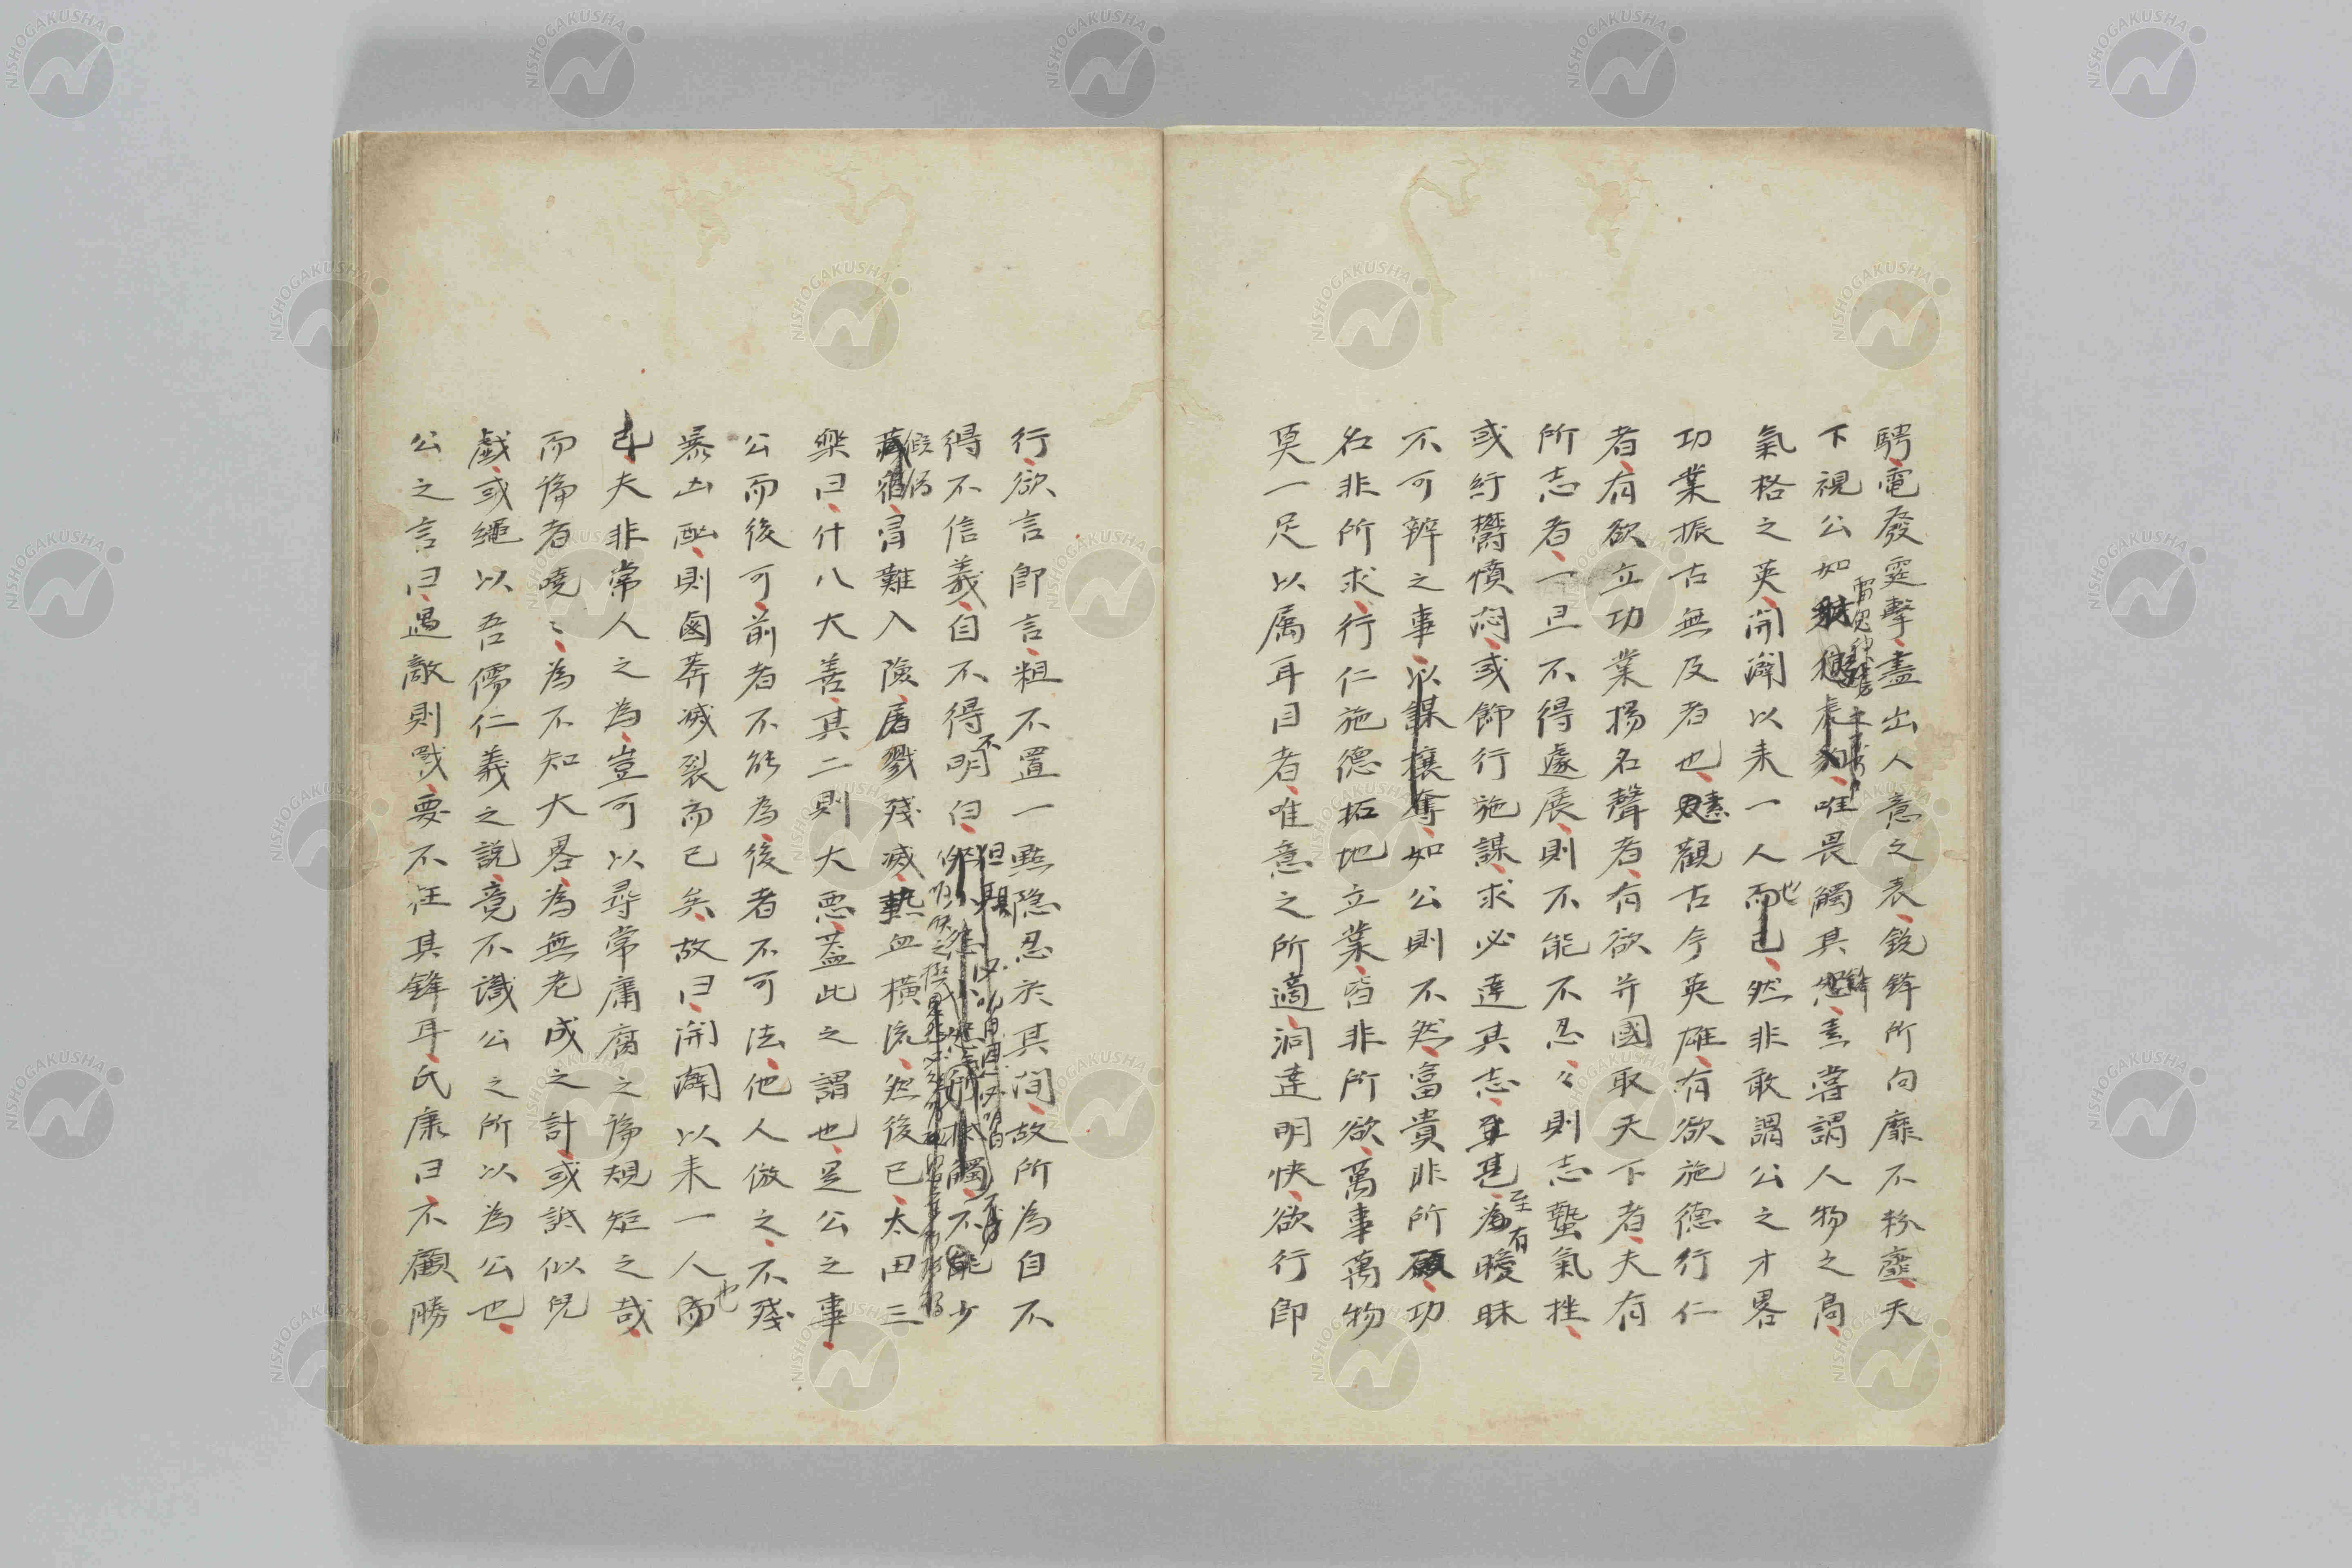 騁電發霆擊盡出人意之表銳鋒所向靡不粉虀天
下視公如唯畏觸其鋒素嘗謂人物之高
氣格之英開闢以来一人也然非敢謂公之才畧
功業振古無及者也觀古今英雄有欲施德行仁
者有欲立功業揚名聲者有欲并國取天下者夫有
所志者一旦不得遽展則不能不忍々則志蟄氣挫
或紆鬱憤悶或飾行施謀求必達其志至有曖昧
不可辨之事如公則不然富貴非所願功
名非所求行仁施德拓地立業皆非所欲萬事萬物
莫一足以属耳目者唯意之所適洞達明快欲行即
行欲言即言粗不置一點隐忍於其间故所為自不
得不信義自不得不明白
假偽冒難入險屠戮殘滅血横流然後已太田三
樂曰什八大善其二則大悪蓋此之謂也是公之事
公而後可前者不能為後者不可法他人倣之不殘
暴凶酗則鹵莽滅裂而已矣故曰開闢以来一人也
夫非常人之為豈可以尋常庸腐之論規矩之哉
而論者嘵々為不知大畧為無老成之計或誂似兒
戯或繩以吾儒仁義之說竟不識公之所以為公也
公之言曰遇敵則戰要不枉其鋒耳氏康曰不顧勝